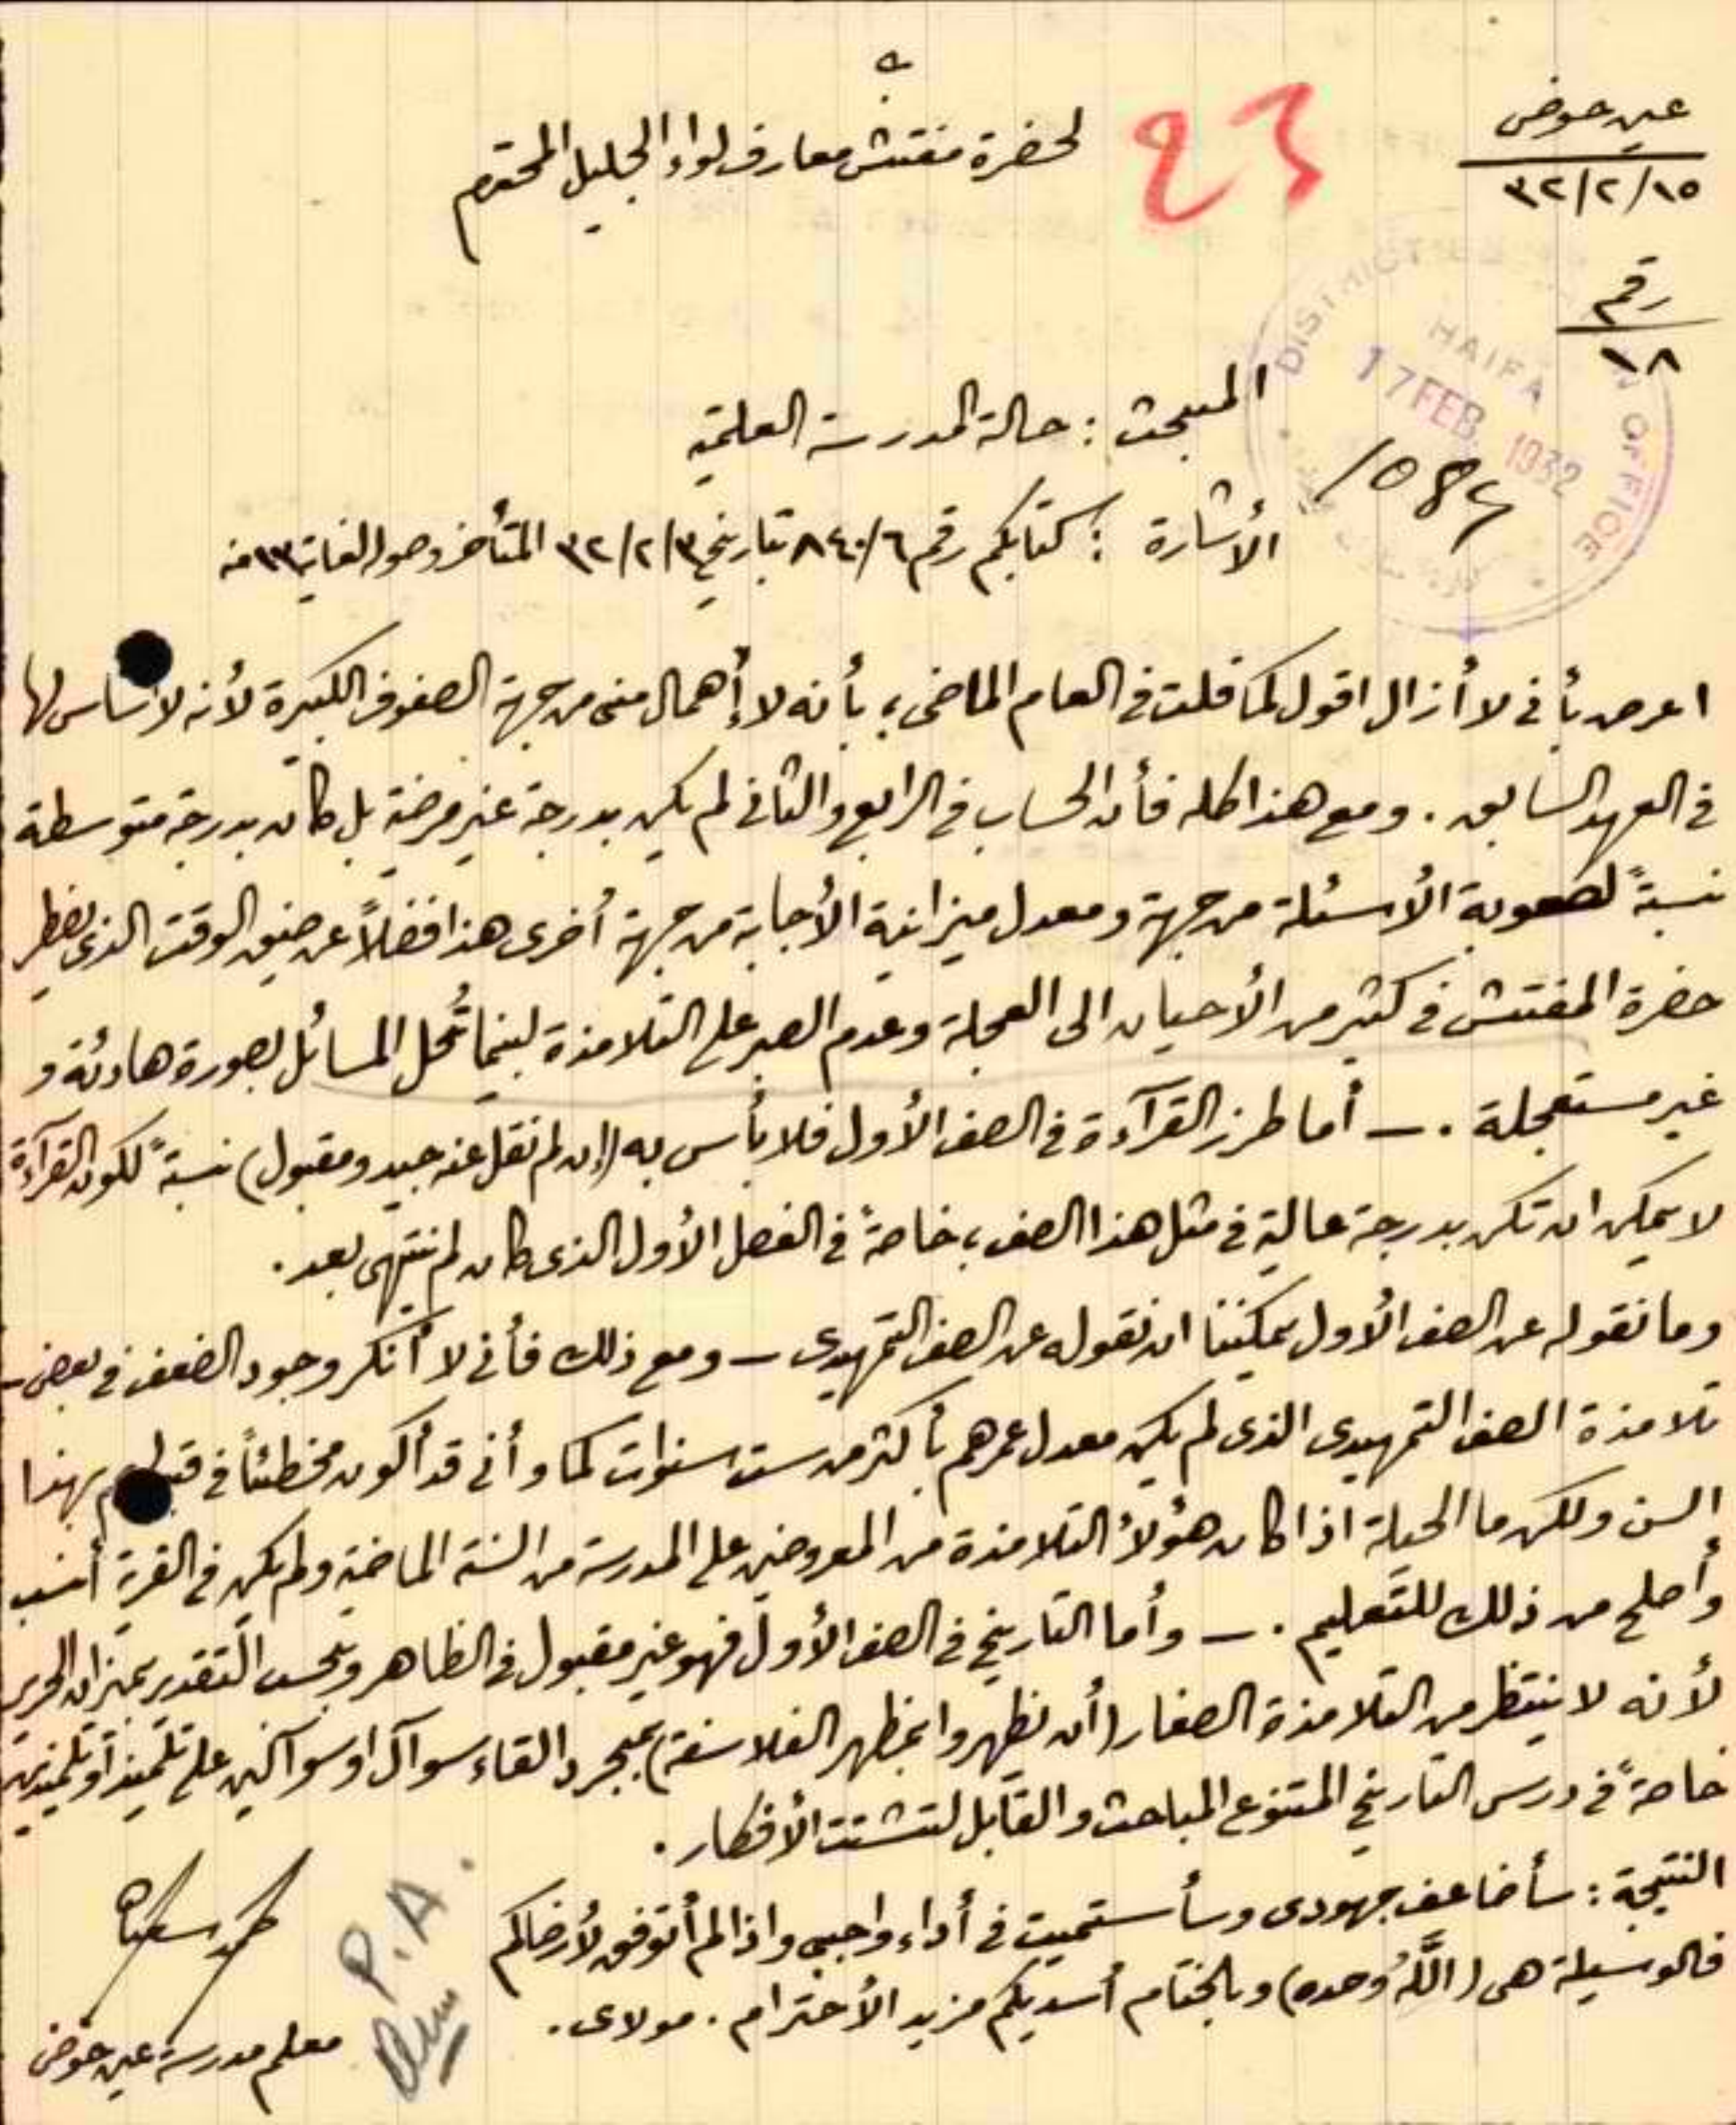 عين حوض
٣٢/٢/١٥
رقم
١٨
23
لحضرة مفتش معارف لواء الجليل المحترم
DISTRICT OFFICE
HAIFA
17 FEB 1932
المبحث : حالة المدرسة العلمية
الأشارة : كتابكم رقم ٨٤٠/٦ تاريخ ٣٢/٢/٣ المتأخر وصوله لغاية ١٣ منه
اعرض بأني لا أزال اقول كما قلت في العام الماضي ، بأنه لا إهمال مني من جهة الصفوف الكبيرة لأنه لا أساس لها
في العهد السابق . ومع هذا كله فأن الحساب في الرابع والثاني لم يكن بدرجة غير مرضية بل كان بدرجة متوسطة
نسبةً لصعوبة الأسئلة من جهة ومعدل ميزانية الأجابة من جهة أخرى هذا فضلاً عن ضيق الوقت الذي يضطر
حضرة المفتش في كثير من الأحيان الى العجلة وعدم الصبر على التلامذة لبينما تُحل المسائل بصورة هادئة و
غير مستعجلة . — أما طرز القرآءة في الصف الأول فلا بأس به (إن لم نقل عنه جيد ومقبول) نسبةً لكون القرآءة
لا يمكن ان تكن بدرجة عالية في مثل هذا الصف ، خاصةً في الفصل الأول الذي كان لم ينتهي بعد .
وما نقوله عن الصف الأول يمكننا ان نقوله عن الصف التمهيدي — ومع ذلك فأني لا أنكر وجود الضعف في بعض -
تلامذة الصف التمهيدي الذي لم يكن معدل عمرهم بأكثر من ست سنوات كما وأني قد أكون مخطئاً في قبولهم بهذا
السن ولكن ما الحيلة اذا كان هؤلاء التلامذة من المعروضين على المدرسة من السنة الماضية ولم يكن في القرية أنسب
وأصلح من ذلك للتعليم . — وأما التاريخ في الصف الأول فهو غير مقبول في الظاهر وبحسب التقدير بميزان الحرير
لأنه لا ينتظر من التلامذة الصغار (أن يظهروا بمظهر الفلاسفة) بمجرد القاء سوآل او سوآلين على تلميذ أو تلميذين
خاصةً في درس التاريخ المتنوع المباحث والقابل لتشتت الأفكار .
النتيجة : سأضاعف جهودي وسأستميت في أداء واجبي واذا لم أتوفق لأرضاكم
فالوسيلة هي (اللهُ وحده) وبالختام أسديكم مزيد الأحترام . مولاي .
P.A.
معلم مدرسة عين حوض